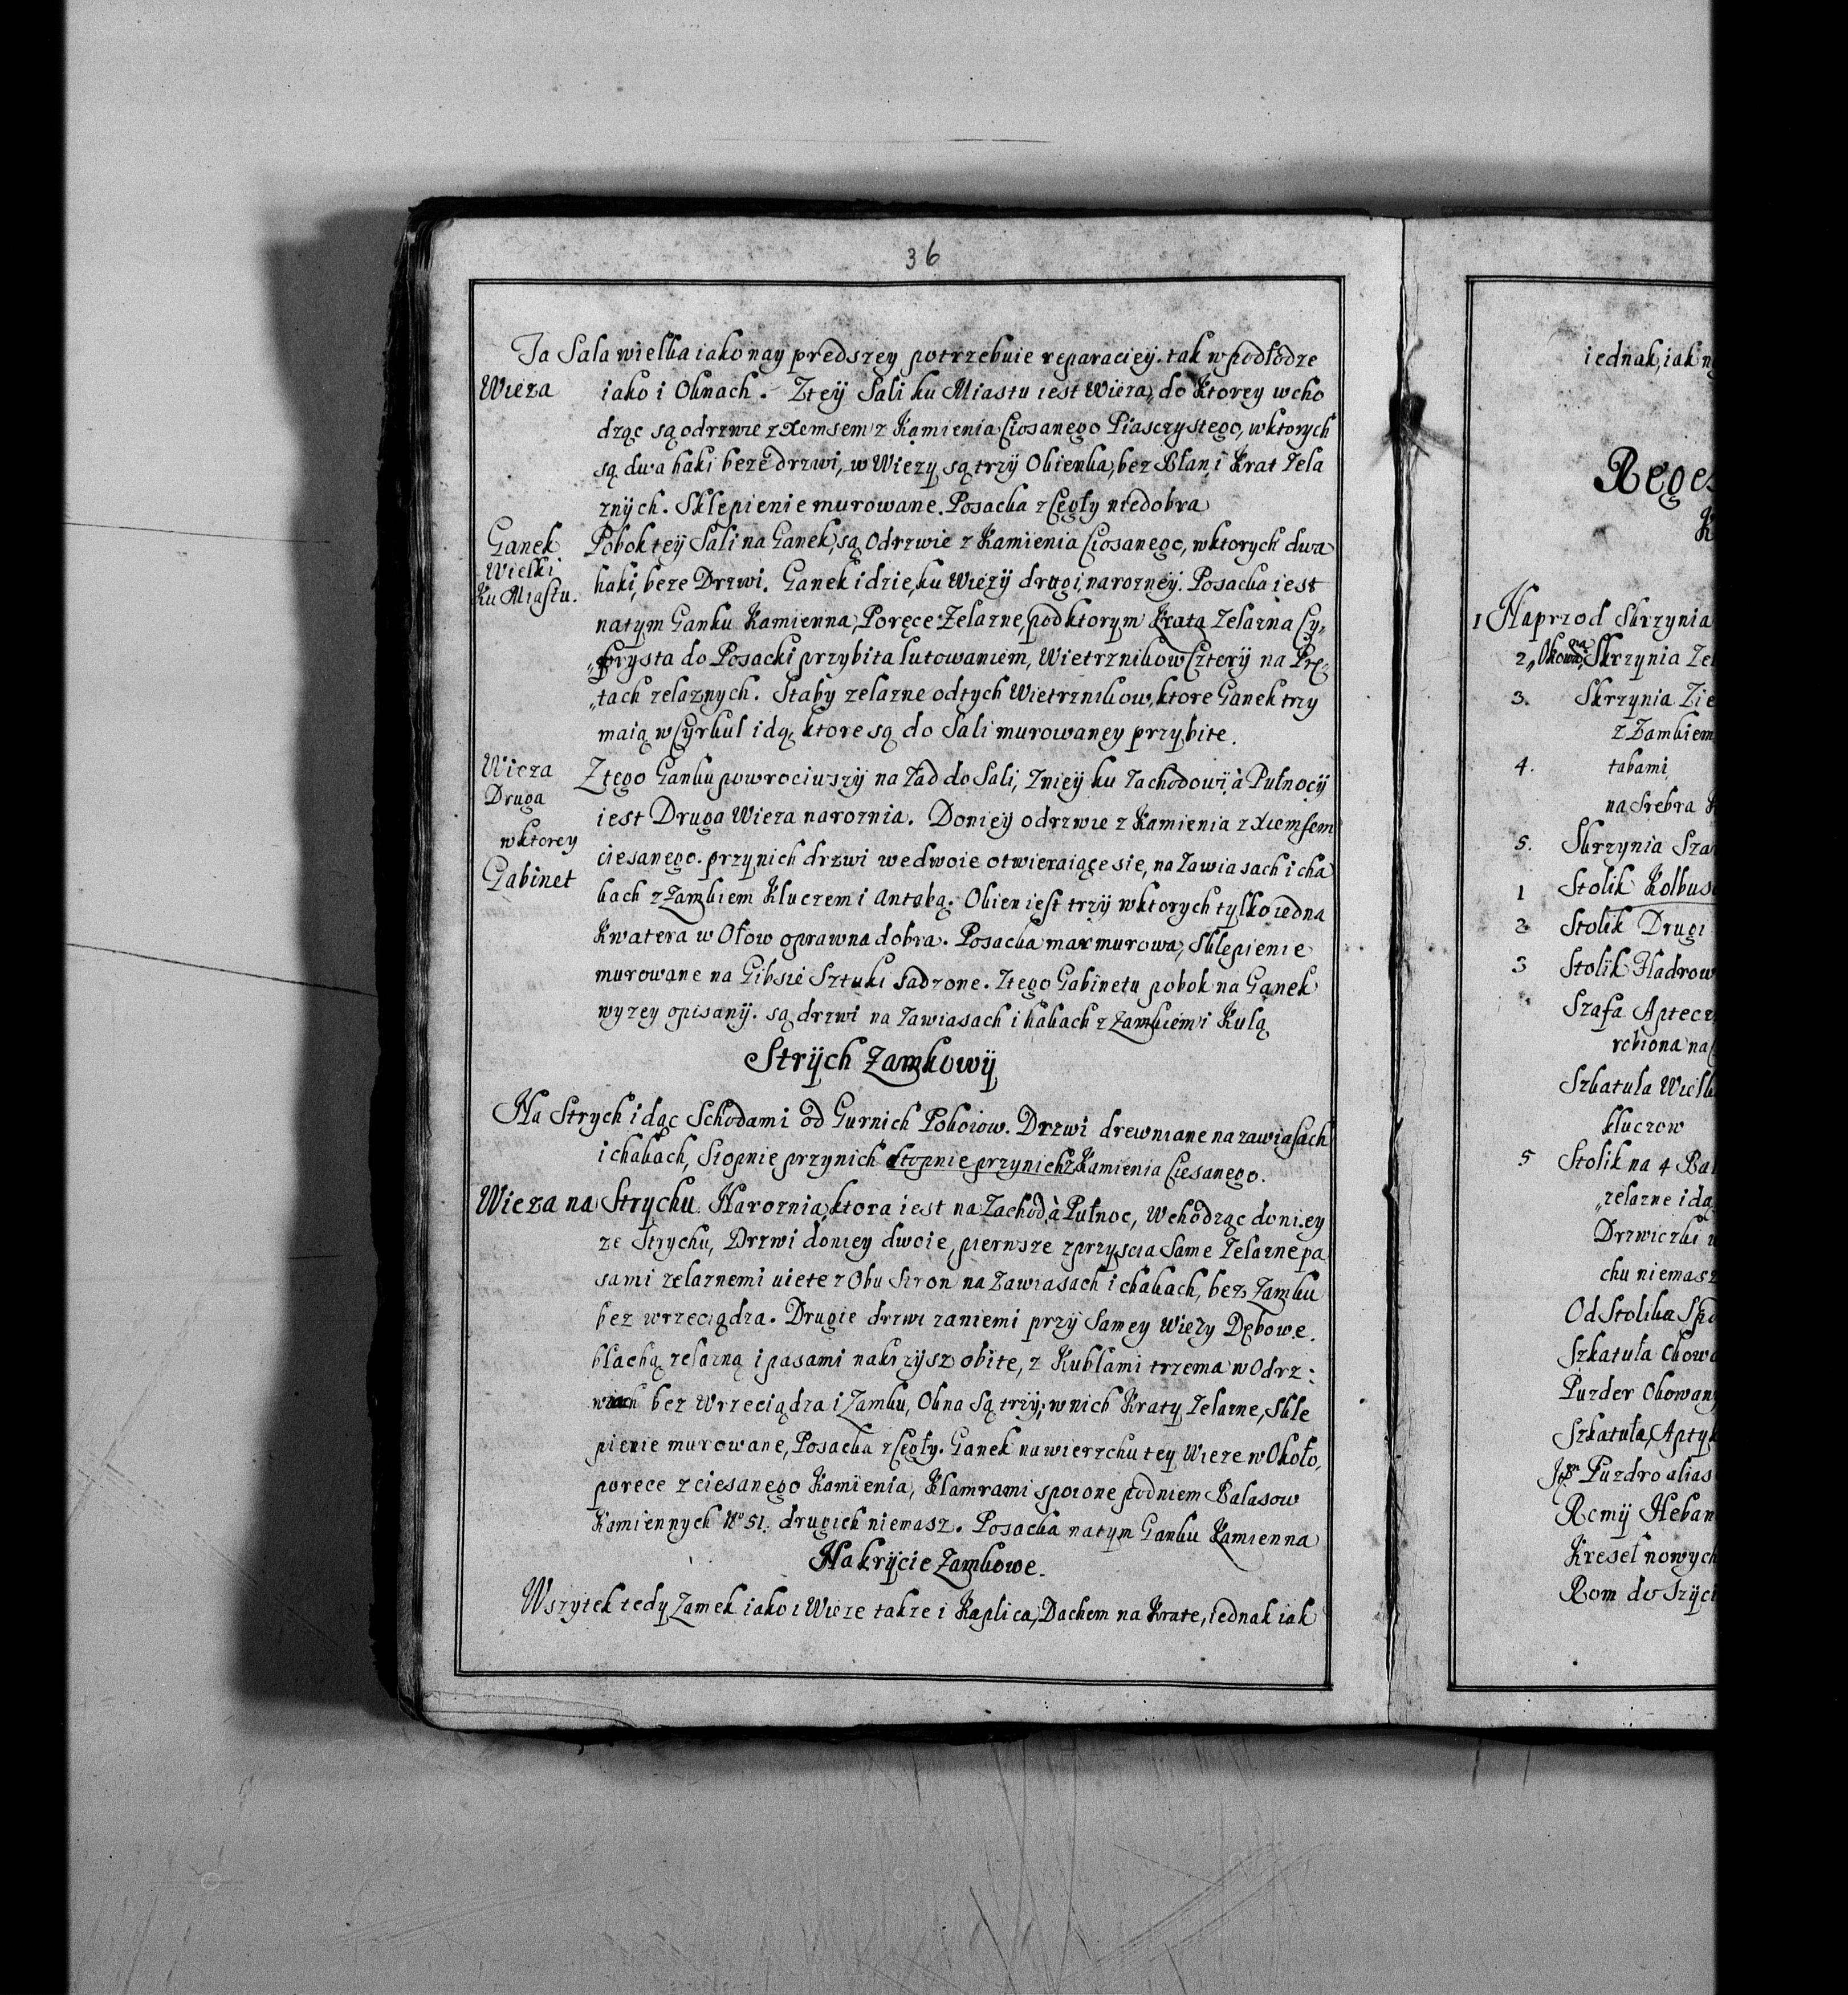 36
Ta Sala wielka iako nay predszey potrzebuie reparacieÿ. tak w podłodze
Wieza
iako i Oknach. Zteÿ Sali ku Miastu iest Wieza, do Ktorey wcho
dząc są odrzwie z xemsem z Kamienia Ciosanego Piasczystego, w ktorych
są dwa haki beze drzwi, w Wiezy są trzÿ Okienka, bez Błan i Krat Zela
znÿch. Sklepienie murowane. Posacka z Cegły niedobra
Ganek
Wielki
Ku Miastu.
Pobok teÿ Sali na Ganek, są Odrzwie z Kamienia Ciosanego, w ktorych dwa
haki, beze Drzwi. Ganek idzie, ku Wiezÿ drugi, narozneÿ. Posacka iest
na tym Ganku Kamienna, Poręce Zelazne, pod ktorym Krata Zelazna Cy„
„prysta do Posacki przybita lutowaniem, Wietrznikow Czterÿ na Prę„
„tach zelaznych. Staby zelazne od tych Wietrznikow, ktore Ganek trzy
maią w Cyrkul idą, ktore są do Sali murowaney przybite.
Wieza
Druga
w ktorey
Gabinet
Z tego Ganku powrociwszÿ na Zad do Sali, Znieÿ ku Zachodowi, à Pułnocÿ
iest Druga Wieza naroznia. Doniey odrzwie z Kamienia z xiemsem
ciesanego. przynich drzwi we dwoie otwieraiące sie, na Zawiasach i cha
kach z Zamkiem Kluczem i Antabą. Okien iest trzÿ w ktorych tylko iedna
Kwatera w Ołow oprawna dobra. Posacka marmurowa, Sklepienie
murowane na Gibsie Sztuki Sadzone. Z tego Gabinetu pobok na Ganek
wyzey opisanÿ. są drzwi na Zawiasach i hakach z Zamkiem i Kulą
Strÿch Zamkowÿ
Na Strych idąc Schodami od Gurnich Pokoiow. Drzwi drewniane na zawiasach
i chakach, Stopnie przynich stopnie przynich z Kamienia Ciesanego.
Wieza na Strychu Naroznia, ktora iest na Zachod, à Pułnoc, Wchodząc do niey
ze Strychu, Drzwi doniey dwoie, pierwsze z przyscia Same Zelazne pa
sami zelaznemi uiete z Obu Stron na Zawiasach i chakach, bez Zamku
bez wrzeciądza. Drugie drzwi za niemi przÿ Samey Wiezy Dębowe.
blachą zelazną i pasami nakrzysz obite, z Kublami trzema w Odrz:
wiach bez Wrzeciądza i Zamku, Okna Są trzÿ, w nich Kraty Zelazne, Skle
pienie murowane, Posacka z Cegły. Ganek na wierzchu tey Wieze w Około,
porece z ciesanego Kamienia, Klamrami spoione podniem Balasow
Kamiennych No 51. drugich niemasz. Posacka na tym Ganku Kamienna
Nakrÿcie Zamkowe.
Wszytek tedy Zamek iako i Wieze takze i Kaplica, Dachem na Krate, iednak iak
iednak, iak
1 Naprzod Skrzynia
2 „Okowana, Skrzynia
3. Skrzynia
z Zamkiem
4. tabami
na Srebra
5. Skrzynia
1 Stolik
2 Stolik Drugi
3 Stolik
Szafa
robiona na
Szkatula
kluczow
5 Stolik na 4
„zelazne
Drzwiczki
chu niemasz
Od Stolika
Szkatuła
Puzder
Szkatuła,
Puzdro alias
Ramÿ
Kreseł nowych
Ram do